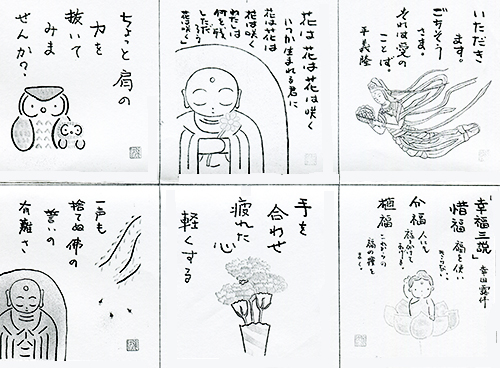 いただき
ます。
ごちそう
さま。
それは愛の
ことば。
平義隆
花は花は花は咲く
いつか生まれる君に
花は花は
花は咲く
わたしは
何を残
しただ
ろう
花は咲く
ちょっと肩の
力を
抜いて
みま
せんか?
「幸福三説」
幸田露伴
惜福 福を使い
分福 人にも
福を分けて
あげる。
植福
福の種を
まく。
手を
合わせ
疲れた
心
軽くする
一声も
捨てぬ佛の
誓いの
有難さ